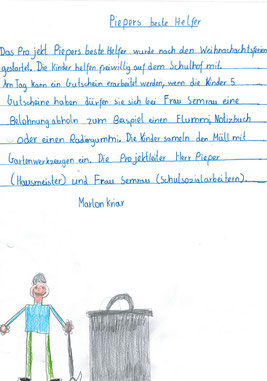 Piepers beste Helfer
Das Projekt Piepers beste Helfer wurde nach den Weihnachachtsferien
gestartet. Die Kinder helfen freiwillig auf dem Schulhof mit.
Am Tag kann ein Gutschein erarbeitet werden, wenn die Kinder 5
Gutscheine haben dürfen sie sich bei Frau Semrau eine
Belohnung abholn zum Beispiel einen Flummi, Notizbuch
oder einen Radiergummi. Die Kinder sameln den Müll mit
Gartenwerkzeugen ein. Die Projektleiter Herr Pieper
(Hausmeister) und Frau Semrau (Schulsozialarbeiterin).
Marlon Kriar